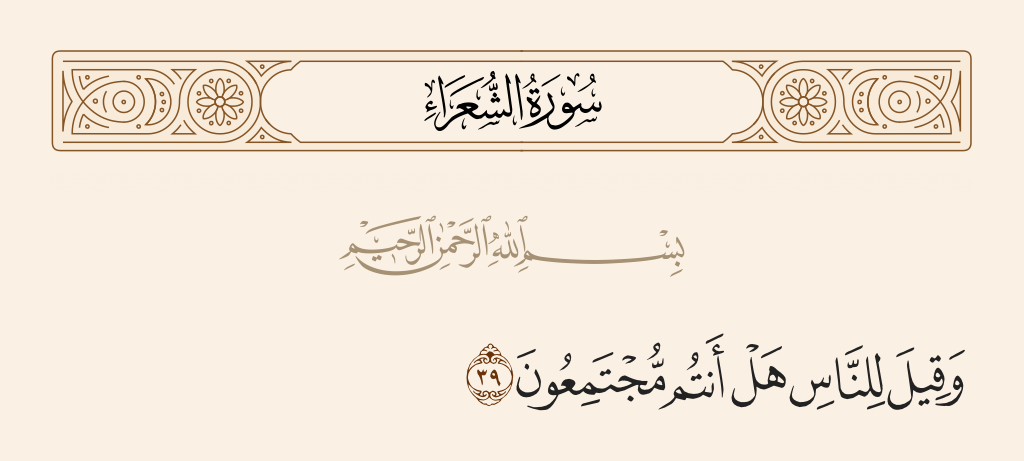 سُورَةُ الشُّعَرَاءِ
بِسْمِ ٱللَّهِ ٱلرَّحْمَٰنِ ٱلرَّحِيمِ
وَقِيلَ لِلنَّاسِ هَلْ أَنتُم مُّجْتَمِعُونَ ٣٩